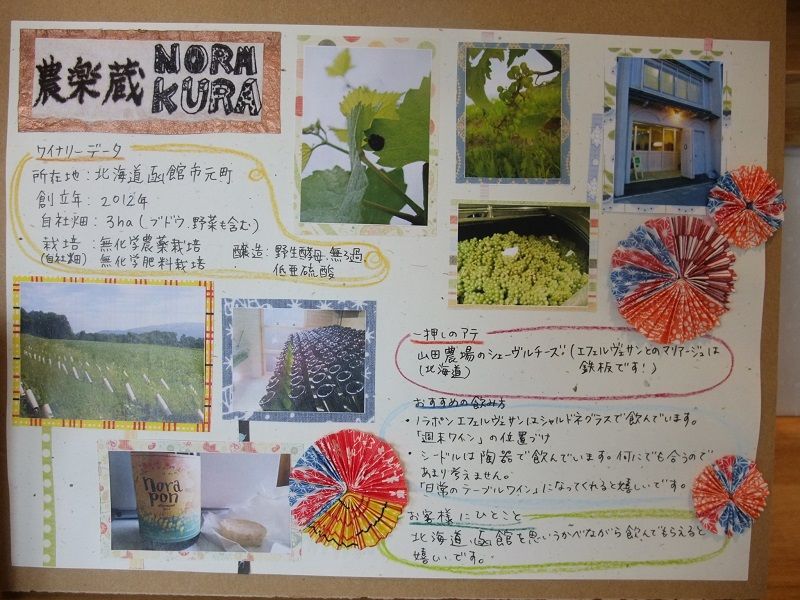 農楽蔵 NORA KURA
ワイナリーデータ
所在地：北海道函館市元町
創立年：2012年
自社畑：3ha（ブドウ、野菜も含む）
栽培：無化学農薬栽培
(自社畑) 無化学肥料栽培
醸造：野生酵母、無ろ過、
低亜硫酸
一押しのアテ
山田農場のシェーヴルチーズ（エフェルヴェサンとのマリアージュは
(北海道) 鉄板です！）
おすすめの飲み方
・ノラポンエフェルヴェサンはシャルドネグラスで飲んでいます。
「週末ワイン」の位置づけ
・シードルは陶器で飲んでいます。何にでも合うので
あまり考えません。
「日常のテーブルワイン」になってくれると嬉しいです。
nora
pon
お客様にひとこと
北海道、函館を思いうかべながら飲んでもらえると
嬉しいです。